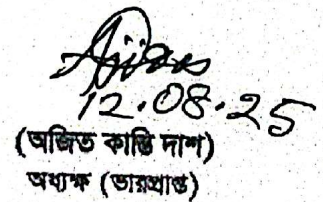 12.08.25
(অজিত কান্তি দাশ)
অধ্যক্ষ (ভারপ্রাপ্ত)